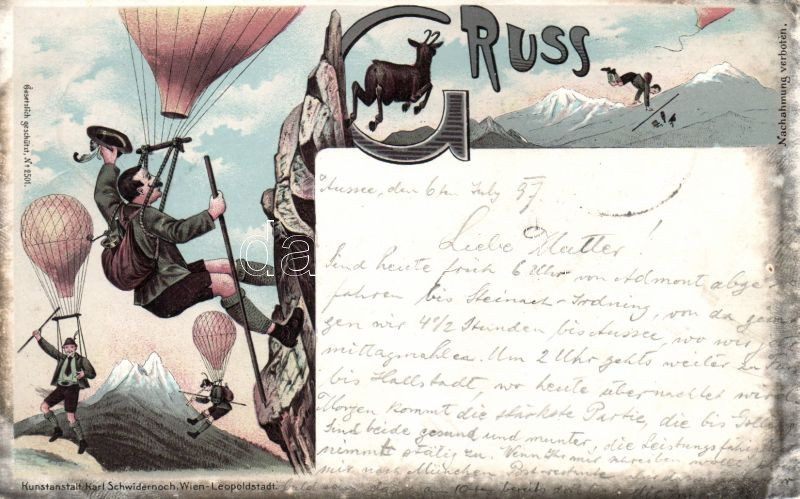 GRUSS
Nachahmung verboten.
Gesetzlich geschützt. No 2501.
Aussee, den 6ten July 97
Liebe Mutter!
Sind heute früh 6 Uhr von Admont abge-
fahren bis Steinach-Irdning, von da
gen wir 4 1/2 Stunden bis Aussee, wo wir
Um 2 Uhr gehts weiter zu
bis Hallstadt, wo heute übernachtet wird
Morgen kommt die stärkste Partie, die bis
Sind beide gesund und munter, die
nimmt stätig zu. Wenn Ihr mir schreiben
mir nach München Postrestante
Kunstanstalt Karl Schwidernoch, Wien-Leopoldstadt.